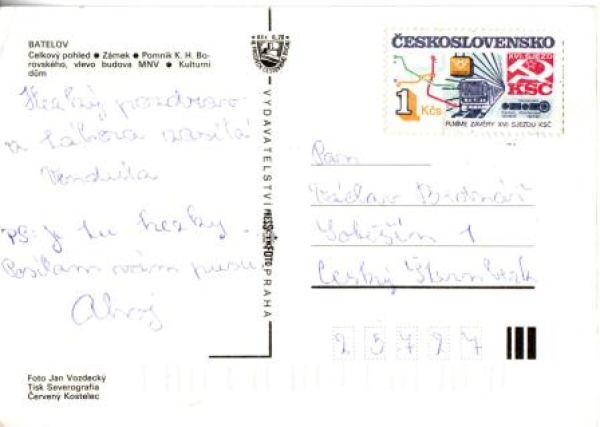 BATELOV
Celkový pohled ● Zámek ● Pomník K. H. Bo-
rovského, vlevo budova MNV ● Kulturní
dům
Hezký pozdrav
z tábora zasílá
Vendula
PS: je tu hezky.
Posílám vám pusu
Ahoj
Foto Jan Vozdecký
Tisk Severografia
Červený Kostelec
VYDAVATELSTVÍ PRESSFOTO PRAHA
ČESKOSLOVENSKO
XVI. SJEZD
KSČ
1 Kčs
PLNÍME ZÁVĚRY XVI. SJEZDU KSČ
Pan
Václav Bednář
1
Český Šternberk
25727